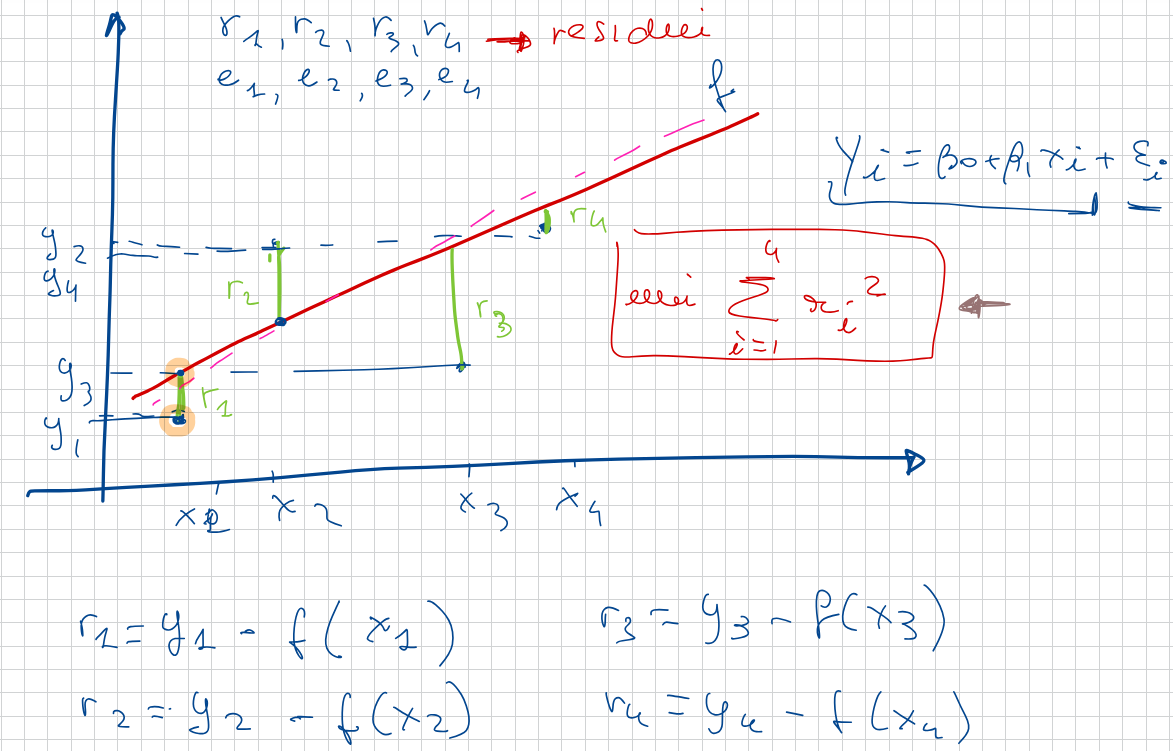 r1, r2, r3, r4 → residui
e1, e2, e3, e4
f
Yi = β0 + β1 xi + εi
y2
y4
r4
r2
r3
min ∑ i=1 4 ri²
y3
r1
y1
x 2
x 3
x 4
r1 = y1 - f(x1)
r3 = y3 - f(x3)
r2 = y2 - f(x2)
r4 = y4 - f(x4)